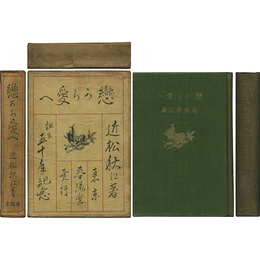 戀から愛へ
近松秋江著
戀から愛へ
近松秌江著
東京
春陽堂
五十年紀念
戀から愛へ
近松秋江著